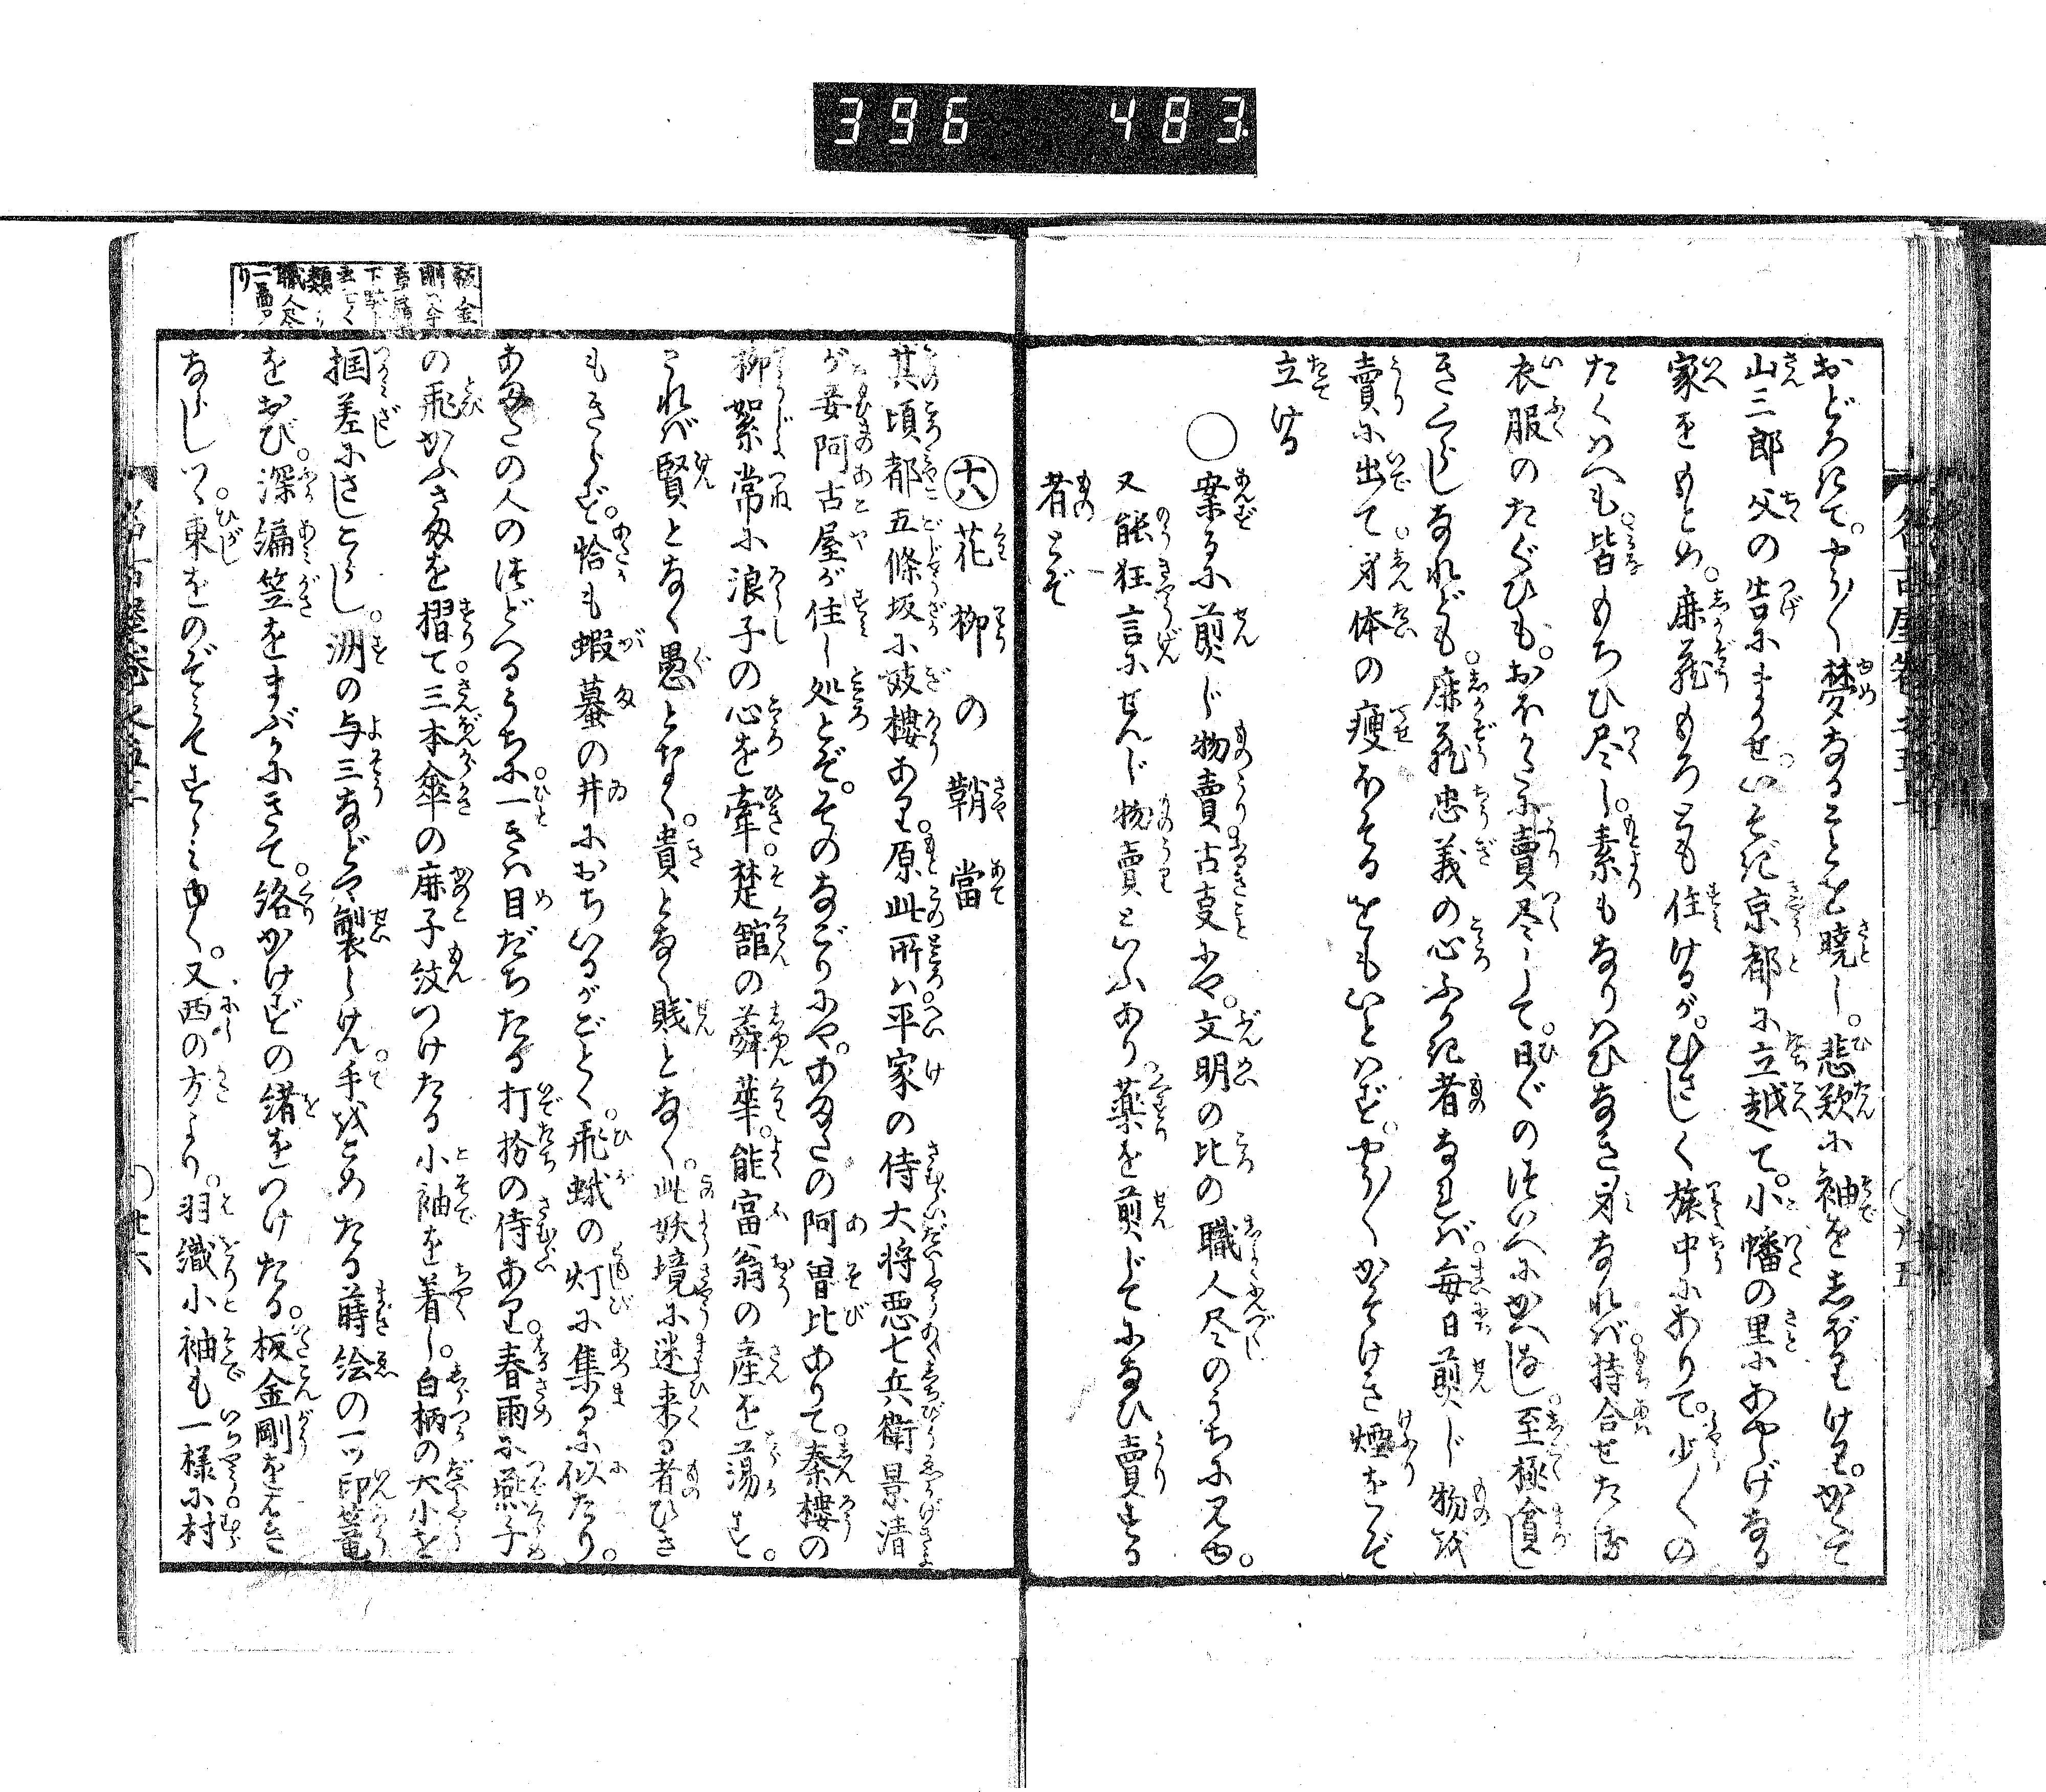 396 483
おどろきて。やう〳〵夢なることを曉し。悲歎に袖をしぼりけり。かくて
山三郎父の告にまかせ。いそぎ京都に立越て。小幡の里にあやしげなる
家をもとめ。鹿蔵もろとも住けるが。ひさしく旅中にありて。少〳〵の
たくはへも。皆もちひ尽し。素もなりはひなき身なれば。持合せたる
衣服のたぐひも。おほかたに賣尽して。日〻の
きくらしなれども。鹿蔵忠義の心ふかき者なれば。毎日煎じ物を
賣に出て。身体の瘦ほそるをもいとはず。やう〳〵かそけき煙をぞ
立ける
○案るに煎じ物賣古支にや。文明の比の職人尽のうちに見ゆ。
又能狂言にせんじ物賣といふあり。薬を煎じてになひ賣する
者とぞ
十八 花柳の鞘當
其頃都五條坂に妓樓あり。原此所は。平家の侍大将悪七兵衛景清
が妾阿古屋が住し処とぞ。そのなごりにや。あまたの阿曽比ありて。秦樓の
柳絮常に浪子の心を牽。楚舘の蕣華。能富翁の産を蕩す。
これば賢となく愚となく。貴となく賤となく。此妖境に迷来る者ひき
もきらず。恰も蝦蟇の井におちいるがごとく。飛蛾の灯に集るに似たり。
あまたの人のつどへるうちに。一きは目だちたる打扮の侍あり。春雨に燕子
の飛かふさまを摺て。三本傘の鹿子紋つけたる小袖を着し。白柄の大小を
掴差にさしこらし。洲の与三などや製しけん。手をこめたる蒔絵の一ツ印篭
をおび。深編笠をまぶかにきて。絡かけずの緒をつけたる。板金剛をはき
ならしつゝ。東をのぞみてすゝみゆく。又西の方より。羽織小袖も一様に村
板金
剛
下
類
職人尽
り